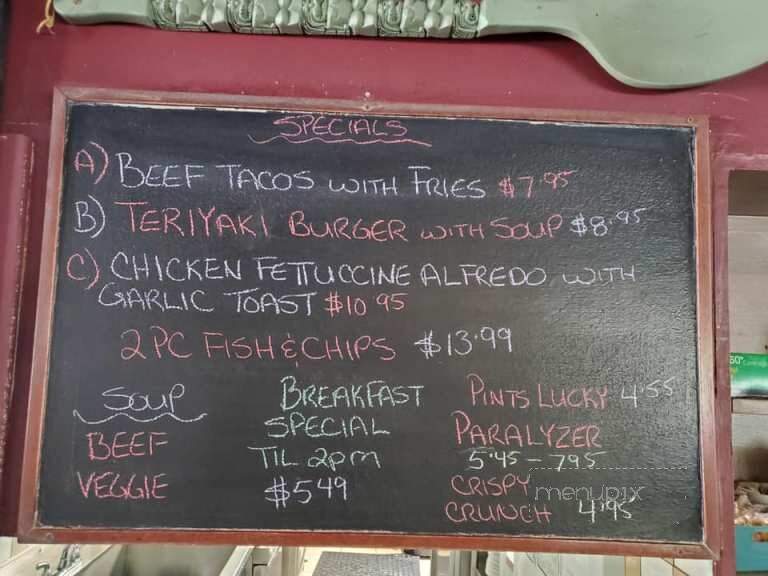 SPECIALS
A) BEEF TACOS WITH FRIES $7.95
B) TERIYAKI BURGER WITH SOUP $8.95
C) CHICKEN FETTUCCINE ALFREDO WITH
GARLIC TOAST $10.95
2 PC FISH & CHIPS $13.99
SOUP
BEEF
VEGGIE
BREAKFAST
SPECIAL
TIL 2pm
$5.49
PINTS LUCKY 4.55
PARALYZER
5.45 - 7.95
CRISPY
CRUNCH 4.95
menupix